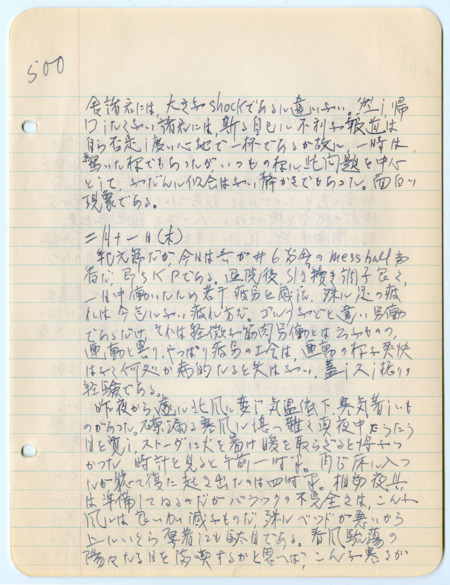 500
舎諸君には、大きな shock であるに違いない。然し帰
りたくない諸君には、斯る自己に不利な報道は
自ら否定し度い心地で一杯である故に、一時は
驚いた様でもあったが、いつもの様に此問題を中心
として、ふだんに似合はない静かさでもあった。面白い
現象である。
二月十一日(木)
紀元節だが今日は吾が #6 舎の mess hall 当
番だ。即ち K P である。退院後 引き続き調子良く、
一日中働いたため若干疲労を感じ、殊に足の疲
れは今迄にない疲れ方だ。ゴルフなどと違い労働
であるだけ、それは軽微な筋肉労働とは云ふものゝ、
運動と異り、やっぱり疲労の工合は、運動の様な爽快
はなく何処か病的たるを失はない。蓋し久し振りの
経験である。
昨夜から遂に北風に変じ気温低下、寒気著しいも
のがあった。隙漏る寒風に堪へ難く真夜中とうとう
目を覚し、ストーヴに火を着け暖を取らざるを得なか
つた。時計を見ると午前一時半。再び床に入つ
たが寝て復た起き出たのは四時半。相当夜具
は準備してゐるのだがバラックの不完全さは、こんな
風には良い加減なものだ。殊にベッドが寒いから
上にいくら厚着しても駄目である。春風駘蕩の
陽々たる日を満喫するかと思へば、こんな寒さが